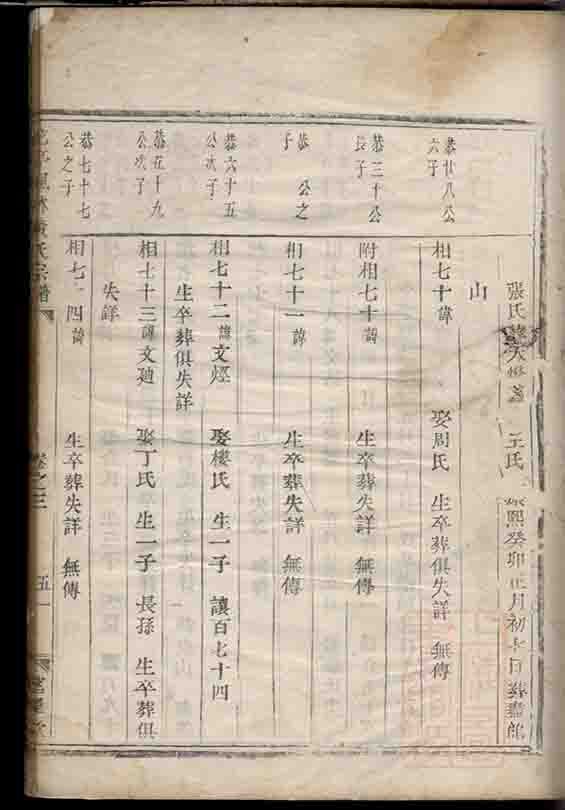 張氏 王氏 熙癸卯正月初十日葬
山
恭廿八公六子
相七十諱 娶周氏 生卒葬俱失詳 無傳
恭三十公長子
附相七十諱 生卒葬失詳 無傳
恭 公之子
相七十一諱 生卒葬失詳 無傳
恭六十五公次子
相七十二諱文烴 娶樓氏 生一子 讓百七十四
生卒葬俱失詳
恭五十九公次子
相七十三諱文廸 娶丁氏 生一子 長孫 生卒葬俱
失詳
恭七十七公之子
相七 四諱 生卒葬失詳 無傳
氏宗譜 卷之三 五